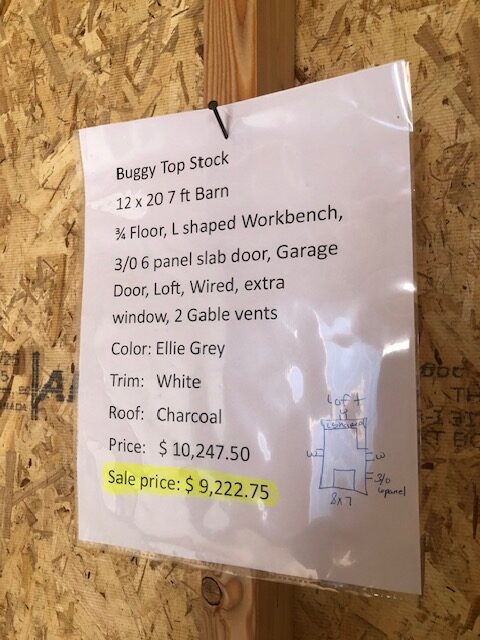 Buggy Top Stock
12 x 20 7 ft Barn
¾ Floor, L shaped Workbench,
3/0 6 panel slab door, Garage
Door, Loft, Wired, extra
window, 2 Gable vents
Color: Ellie Grey
Trim: White
Roof: Charcoal
Price: $ 10,247.50
Sale price: $ 9,222.75
Loft
4
W
W
3/0
6panel
8x7